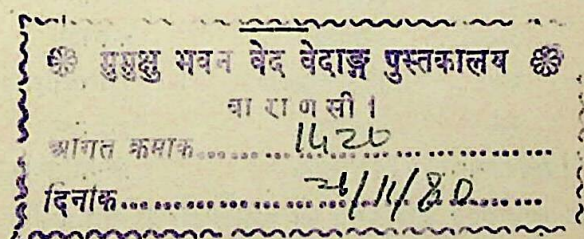 मुमुक्षु भवन वेद वेदाङ्ग पुस्तकालय
वा रा ण सी ।
आगत क्रमांक......1420......
दिनांक......../11/80......